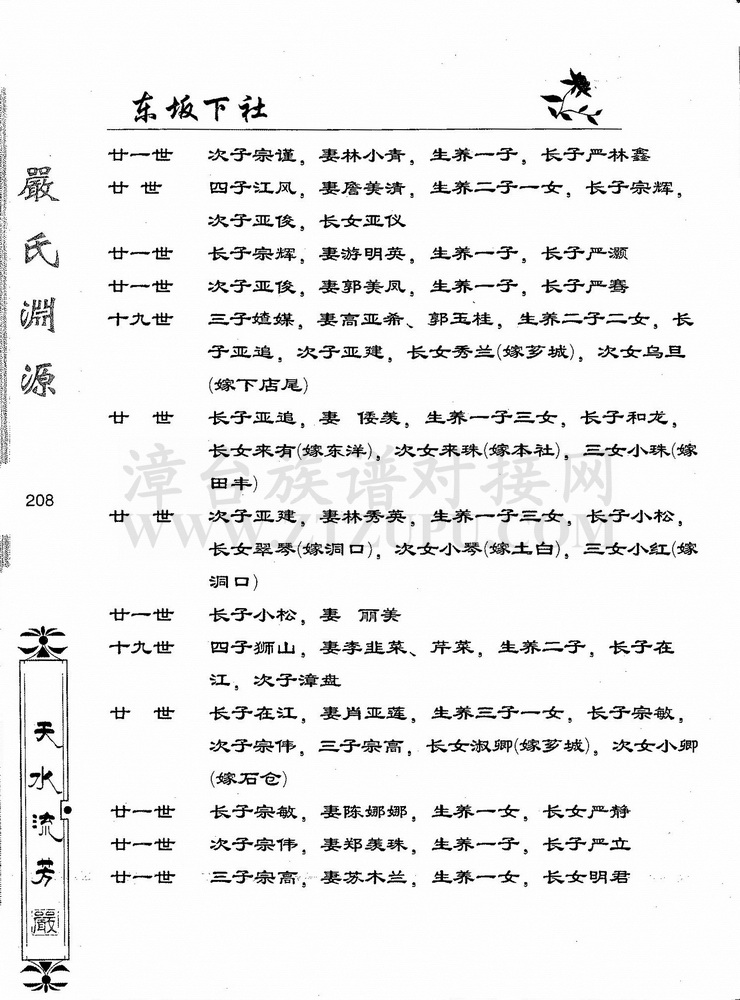 东坂下社
嚴氏淵源
208
天水流芳
嚴
廿一世 次子宗谨，妻林小青，生养一子，长子严林鑫
廿世 四子江风，妻詹美清，生养二子一女，长子宗辉，
次子亚俊，长女亚仪
廿一世 长子宗辉，妻游明英，生养一子，长子严灏
廿一世 次子亚俊，妻郭美凤，生养一子，长子严骞
十九世 三子媎媒，妻高亚希、郭玉桂，生养二子二女，长
子亚追，次子亚建，长女秀兰(嫁芗城)，次女乌旦
(嫁下店尾)
廿世 长子亚追，妻 倭羡，生养一子三女，长子和龙，
长女来有(嫁东洋)，次女来珠(嫁本社)，三女小珠(嫁
田丰)
廿世 次子亚建，妻林秀英，生养一子三女，长子小松，
长女翠琴(嫁洞口)，次女小琴(嫁土白)，三女小红(嫁
洞口)
廿一世 长子小松，妻 丽美
十九世 四子狮山，妻李韭菜、芹菜，生养二子，长子在
江，次子漳盘
廿世 长子在江，妻肖亚莲，生养三子一女，长子宗敏，
次子宗伟，三子宗高，长女淑卿(嫁芗城)，次女小卿
(嫁石仓)
廿一世 长子宗敏，妻陈娜娜，生养一女，长女严静
廿一世 次子宗伟，妻郑羡珠，生养一子，长子严立
廿一世 三子宗高，妻苏木兰，生养一女，长女明君
漳台族谱对接网
WWW.ZTZUPU.COM